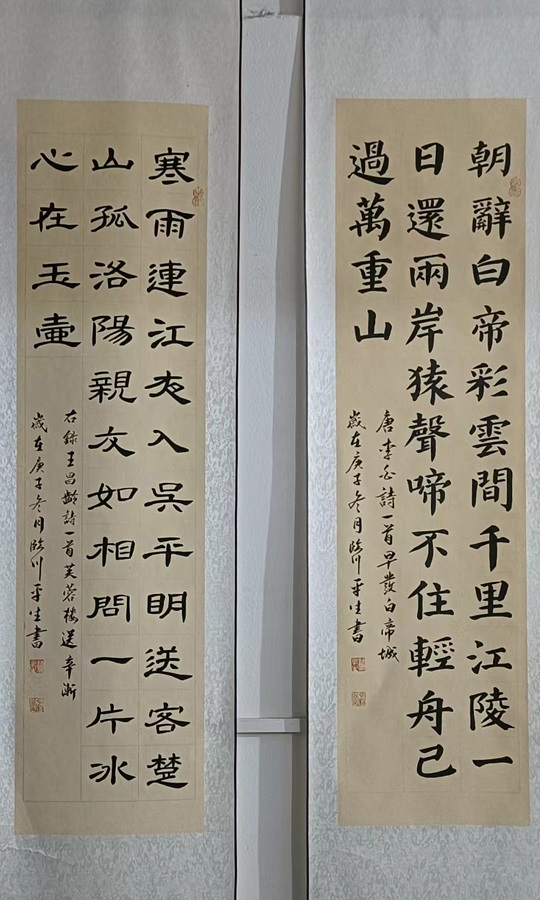 朝辭白帝彩雲間千里江陵一
日還兩岸猿聲啼不住輕舟已
過萬重山
唐李白詩一首早發白帝城
歲在庚子冬月臨川平生書
寒雨連江夜入吳平明送客楚
山孤洛陽親友如相問一片冰
心在玉壺
右録王昌齡詩一首芙蓉樓送辛漸
歲在庚子冬月臨川平生書